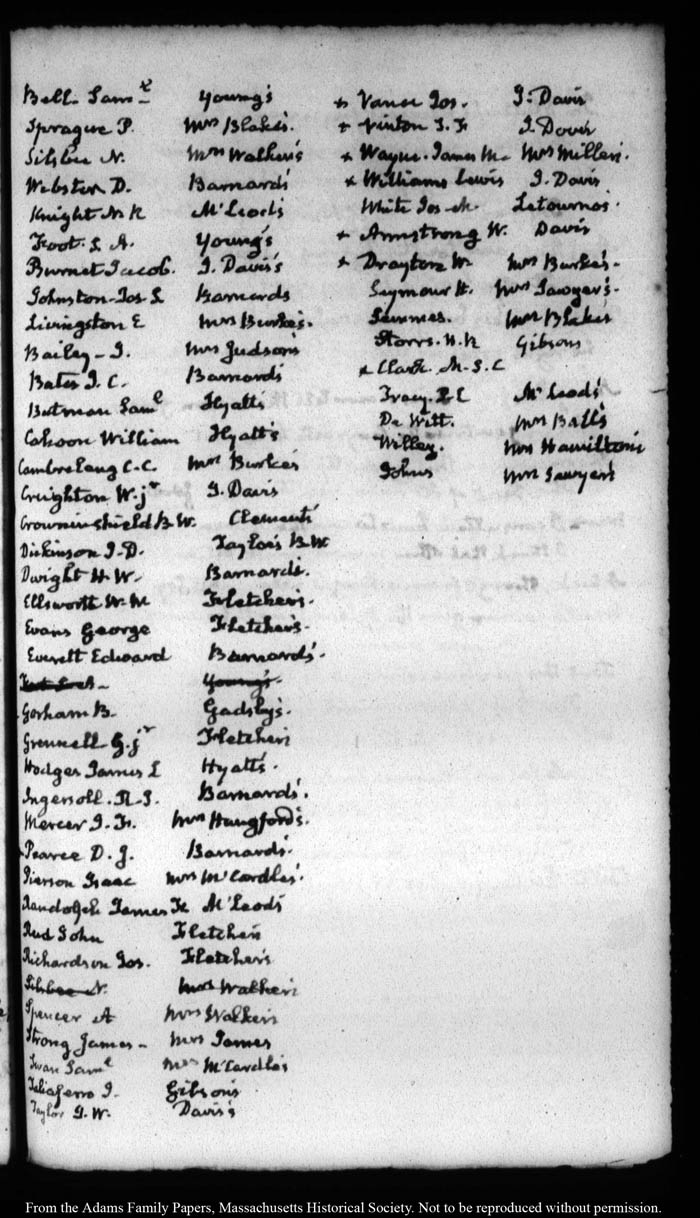 Bell Sam^l Young's
Sprague P. Mrs Blake's.
Silsbee N. Mrs Walker's
Webster D. Barnard's
Knight N. R McLeod's
Foot. S A. Young's
Burnet Jacob. J. Davis's
Johnston Jos. S Barnards
Livingston E Mrs Burke's.
Bailey - J. Mrs Judson's
Bates I. C. Barnard's
Butman Sam^l Hyatt's
Cahoon William Hyatt's
Cambreleng C. C. Mrs Burke's
Creighton W. j^r J. Davis
Crowninshield B. W. Clement's
Dickinson J. D. Taylor's B W
Dwight H. W. Barnard's.
Ellsworth W. W Fletcher's.
Evans George Fletcher's.
Everett Edward Barnard's.
Young's.
Gorham B. Gadsby's.
Grennell G. j^r Fletcher's
Hodges James L Hyatt's.
Ingersoll. R. I. Barnard's.
Mercer I. Fr. Mrs Hungford's.
Pearce D. J. Barnard's.
Pierson Isaac Mrs McCardle's.
Randolph James F. McLeod's
Reed John Fletcher's
Richardson Jos. Fletcher's
Silsbee N. Mrs Walker's
Spencer A Mrs Walker's
Strong James - Mrs James
Swan Sam^l Mrs McCardle's
Taliaferro J. Gibson's
Taylor J. W. Davis's
+ Vance Jos. J. Davis
+ Vinton S. F. J. Davis
+ Wayne. James M. Mrs Miller's.
+ Williams Lewis J. Davis
White Jos. M. Letourno's.
+ Armstrong W. Davis
+ Drayton W. Mrs Burke's -
Seymour H. Mrs Sawyer's.
Semmes. Mrs Blake's
Storrs. H. R Gibsons
+ Clark. M. S. C
Tracy. P. C McLeod's
De Witt. Mrs Ball's
Willey. Mrs Hamilton's
Johns Mrs Sawyer's
From the Adams Family Papers, Massachusetts Historical Society. Not to be reproduced without permission.